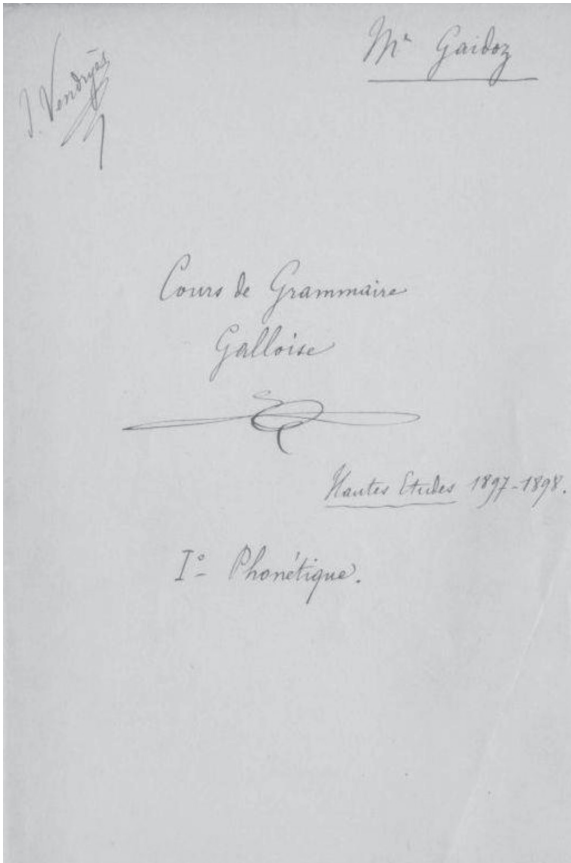 J. Vendryes
Mr Gaidoz
Cours de Grammaire
Galloise
Hautes Etudes 1897-1898.
I° - Phonétique.